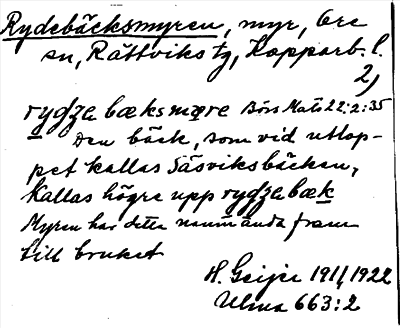 Rydebäcksmyren, myr, Ore
sn, Rättviks tg, Kopparb. l.
2,
rydzabæksmøre Börs Mats 22:2:35
Den bäck, som vid utlop-
pet kallas Säsviksbäcken,
kallas högre upp rydzabæk
Myren har detta namn ända fram
till bruket
H. Geijer 1911, 1922
Ulma 663:2